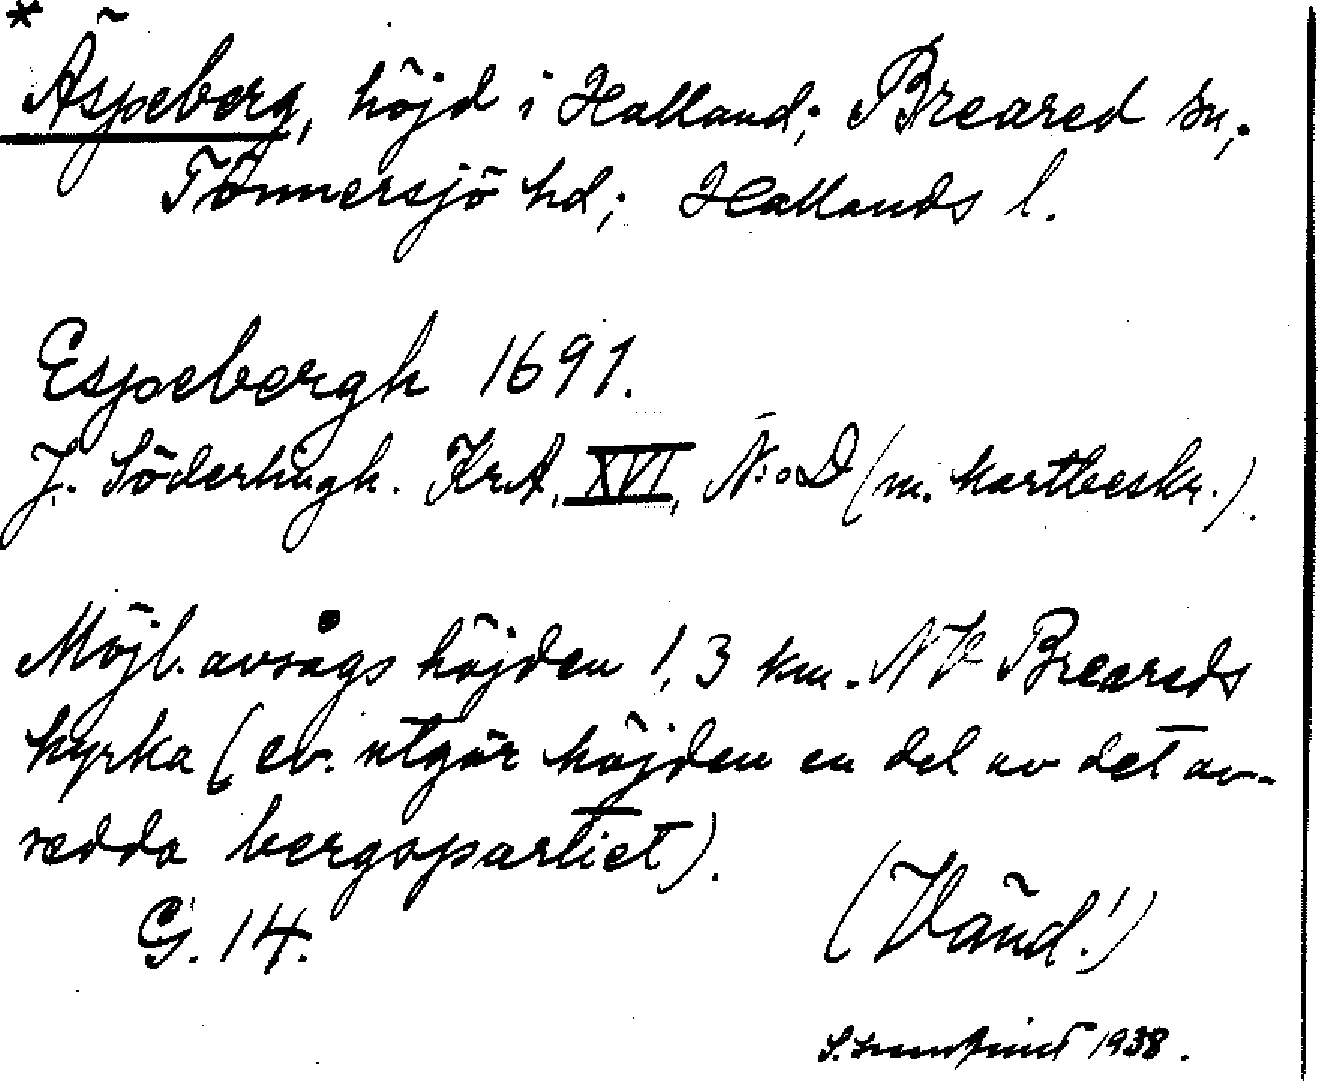 * Äspeberg, höjd i Halland; Breared sn,;
Tönnersjö hd; Hallands l.
Espebergh 1691.
J. Söderhugh. KrA, XVI, N:o D (m. kartbeskr.).
Möjl. avsågs höjden 1,3 km. NV Breareds
kyrka (ev. utgör höjden en del av det av-
sedda bergspartiet).
G. 14.
(Vänd!)
1938.